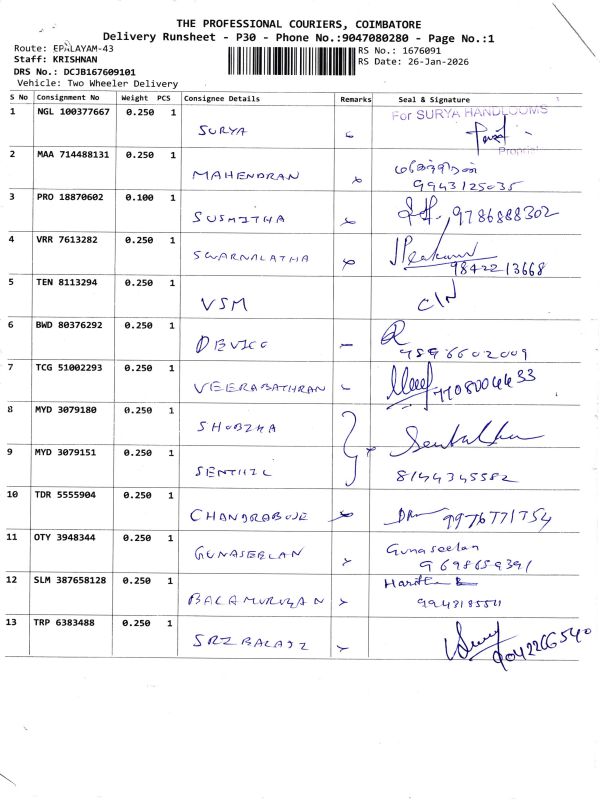 THE PROFESSIONAL COURIERS, COIMBATORE
Delivery Runsheet - P30 - Phone No.:9047080280 - Page No.:1
Route: EPALAYAM-43
RS No.: 1676091
Staff: KRISHNAN
RS Date: 26-Jan-2026
DRS No.: DCJB167609101
Vehicle: Two Wheeler Delivery
S No Consignment No Weight PCS Consignee Details Remarks Seal & Signature
1 NGL 100377667 0.250 1 SURYA For SURYA HANDLOOMS
2 MAA 714488131 0.250 1 MAHENDRAN மகேந்திரன்
9943125035
3 PRO 18870602 0.100 1 SUSMITHA 9786888302
4 VRR 7613282 0.250 1 SWARNALATHA
9842213668
5 TEN 8113294 0.250 1 VSM C/N
6 BWD 80376292 0.250 1
7596602009
7 TCG 51002293 0.250 1 VEERABATHRAN 7708004433
8 MYD 3079180 0.250 1 SHOBIKA
9 MYD 3079151 0.250 1 SENTHIL 8144345582
10 TDR 5555904 0.250 1 9976771754
11 OTY 3948344 0.250 1 GUNASEELAN Gunaseelan
9698659391
12 SLM 387658128 0.250 1 BALAMURUGAN
13 TRP 6383488 0.250 1 SRI BALAJI